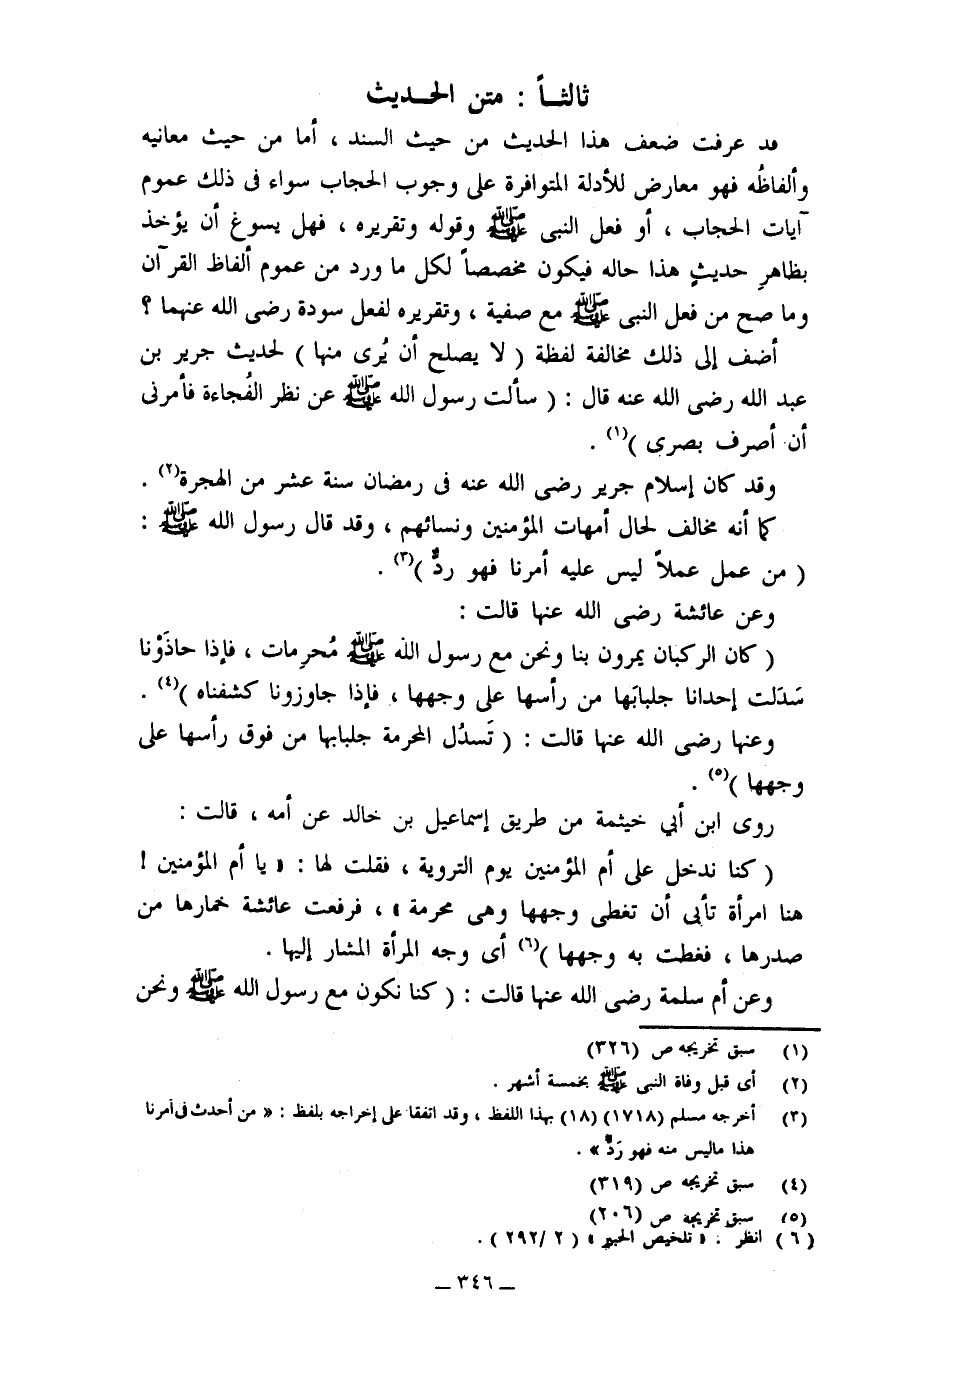 ثالثـاً : متن الحـديث
قد عرفت ضعف هذا الحديث من حيث السند ، أما من حيث معانيه
وألفاظُه فهو معارض للأدلة المتوافرة على وجوب الحجاب سواء فى ذلك عموم
آيات الحجاب ، أو فعل النبى ﷺ وقوله وتقريره ، فهل يسوغ أن يؤخذ
بظاهرِ حديثٍ هذا حاله فيكون مخصصاً لكل ما ورد من عموم ألفاظ القرآن
وما صح من فعل النبى ﷺ مع صفية ، وتقريره لفعل سودة رضى الله عنهما ؟
أضف إلى ذلك مخالفة لفظة ( لا يصلح أن يُرى منها ) لحديث جرير بن
عبد الله رضى الله عنه قال : ( سألت رسول الله ﷺ عن نظر الفُجاءة فأمرنى
أن أصرف بصرى )(١) .
وقد كان إسلام جرير رضى الله عنه فى رمضان سنة عشر من الهجرة(٢) .
كما أنه مخالف لحال أمهات المؤمنين ونسائهم ، وقد قال رسول الله ﷺ :
( من عمل عملاً ليس عليه أمرنا فهو ردٌّ )(٣) .
وعن عائشة رضى الله عنها قالت :
( كان الركبان يمرون بنا ونحن مع رسول الله ﷺ مُحرِمات ، فإذا حاذَوْنا
سَدَلت إحدانا جلبابَها من رأسها على وجهها ، فإذا جاوزونا كشفناه )(٤) .
وعنها رضى الله عنها قالت : ( تَسدُل المحرمة جلبابها من فوق رأسها على
وجهها )(٥) .
روى ابن أبي خيثمة من طريق إسماعيل بن خالد عن أمه ، قالت :
( كنا ندخل على أم المؤمنين يوم التروية ، فقلت لها : « يا أم المؤمنين !
هنا امرأة تأبى أن تغطى وجهها وهى محرمة » ، فرفعت عائشة خمارها من
صدرها ، فغطت به وجهها )(٦) أى وجه المرأة المشار إليها .
وعن أم سلمة رضى الله عنها قالت : ( كنا نكون مع رسول الله ﷺ ونحن
(١) سبق تخريجه ص (٣٢٦)
(٢) أى قبل وفاة النبى ﷺ بخمسة أشهر .
(٣) أخرجه مسلم (١٧١٨) (١٨) بهذا اللفظ ، وقد اتفقا على إخراجه بلفظ : « من أحدث فى أمرنا
هذا ماليس منه فهو رَدٌّ » .
(٤) سبق تخريجه ص (٣١٩)
(٥) سبق تخريجه ص (٢٠٦)
(٦) انظر : « تلخيص الحبير » (٢٩٢/٢) .
ـ ٣٤٦ ـ